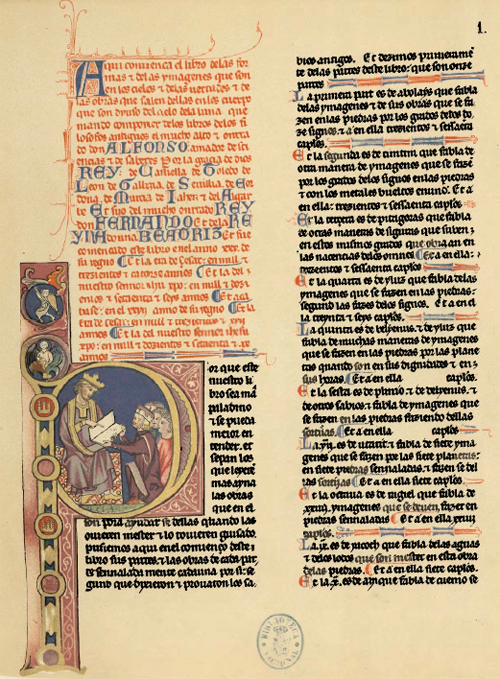 1.
Aqui comiença el libro delas for
mas & delas ymagenes que son
en los cielos & delas uertudes & de
las obras que salen dellas en los cuerpos
que son dyuso del cielo dela luna que
mando componer delos libros delos fi
losofos antigos el mucho alto & onrra
do don ALFONSO amador de sci
encias & de saberes Por la gracia de dios
REY: de Castiella de Toledo de
Leon de Gallizia de Seuilla de Cor
doua de Murcia de Jahen & del Algarbe
Et fijo del mucho onrrado REY
don FERNANDO Et dela RE
YNA donna BEATRIZ Et fue
començado este libro en el anno xxv. de
su regno Et la era de Cesar: en mill &
trezientos & catorze annos Et la del
nuestro sennor ihu xpo: en mill & dozi
entos & setaenta & seys annos Et aca
base: en el xxvij anno de su regno Et la
era de Cesar: en mill & trezientos & xvij
annos Et la del nuestro sennor ihesu
xpo: en mill & dozientos & setaenta & ix
annos
Por que este
nuestro li
bro sea mas
paladino
& se pueda
meior en
tender. et
sepan los
que leyeren
mas ayna
las obras
que en el
son pora ayudar se dellas quando las
ouieren mester & lo touieren guisado.
pusiemos aqui en el comienço deste li
bro sus partes & las obras de cada par
te sennalada mente cadauna por si: se
gund que dixieron & prouaron los sa
bios antigos. Et dezimos primeramen
te delas partes deste libro: que son onze
partes
La primera part es de abolays que fabla
delas ymagenes & de sus obras que se fa
zen en las piedras por los grados delos do
ze signos & a en ella trezientos & sessaenta
caplos.
Et la segunda es de timtim que fabla de
otra manera de ymagenes que se fazen
por los grados delos signos en las piedras
& con los metales bueltos en uno. Et a
en ella: trezientos & sessaenta caplos
Et la tercera es de pitagoras que fabla
de otras maneras de figuras que suben
en estos mismos grados que obran en
las nacencias delos omnes Et a en ella:
trezientos & sessaenta caplos
Et la quarta es de ylus que fabla delas
ymagenes que se fazen en las piedras:
segund las fazes delos signos. Et a en el
la treynta & seys caplos.
La quinta es de belyenus. & de ylus que
fabla de muchas maneras de ymagenes
que se fazen en las piedras por las plane
tas quando son en sus dignidades & en
sus horas. Et a en ella caplos.
Et la sesta es de plinio. & de belyenus. &
de otros sabios: & fabla de ymagenes que
se fazen en las piedras faziendo dellas
sortijas. Et a en ella caplos
La vij. es de utarit. & fabla de siete yma
genes que se fazen por las siete planetas:
en siete piedras sennaladas. & fazen se del
las sortijas Et a en ella siete caplos.
Et la octaua es de ragiel que fabla de
xxiiij. ymagenes que se deuen fazer en
piedras sennaladas Et a en ella xxiiij
caplos.
La ix. es de yacoth que fabla delas aguas
& delos logos que son mester en esta obra
delas piedras. Et a en ella siete caplos.
Et la x. es de aly que fabla de cuemo se
BIBLIOTECA